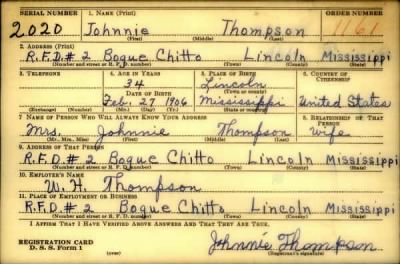 SERIAL NUMBER 1. NAME (Print) ORDER NUMBER
2020 Johnnie Thompson 1161
(First) (Middle) (Last)
2. ADDRESS (Print)
R.F.D.# 2 Bogue Chitto Lincoln Mississippi
(Number and street or R. F. D. number) (Town) (County) (State)
3. TELEPHONE 4. AGE IN YEARS 5. PLACE OF BIRTH 6. COUNTRY OF CITIZENSHIP
34 Lincoln
DATE OF BIRTH (Town or county)
Feb. 27 1906 Mississippi United States
(Exchange) (Number) (Mo.) (Day) (Yr.) (State or country)
7. NAME OF PERSON WHO WILL ALWAYS KNOW YOUR ADDRESS 8. RELATIONSHIP OF THAT PERSON
Mrs. Johnnie Thompson wife
(Mr., Mrs., Miss) (First) (Middle) (Last)
9. ADDRESS OF THAT PERSON
R.F.D.# 2 Bogue Chitto Lincoln Mississippi
(Number and street or R. F. D. number) (Town) (County) (State)
10. EMPLOYER'S NAME
W. H. Thompson
11. PLACE OF EMPLOYMENT OR BUSINESS
R.F.D.# 2 Bogue Chitto Lincoln Mississippi
(Number and street or R. F. D. number) (Town) (County) (State)
I AFFIRM THAT I HAVE VERIFIED ABOVE ANSWERS AND THAT THEY ARE TRUE.
REGISTRATION CARD
D. S. S. Form 1 (over) Johnnie Thompson
(Registrant's signature)